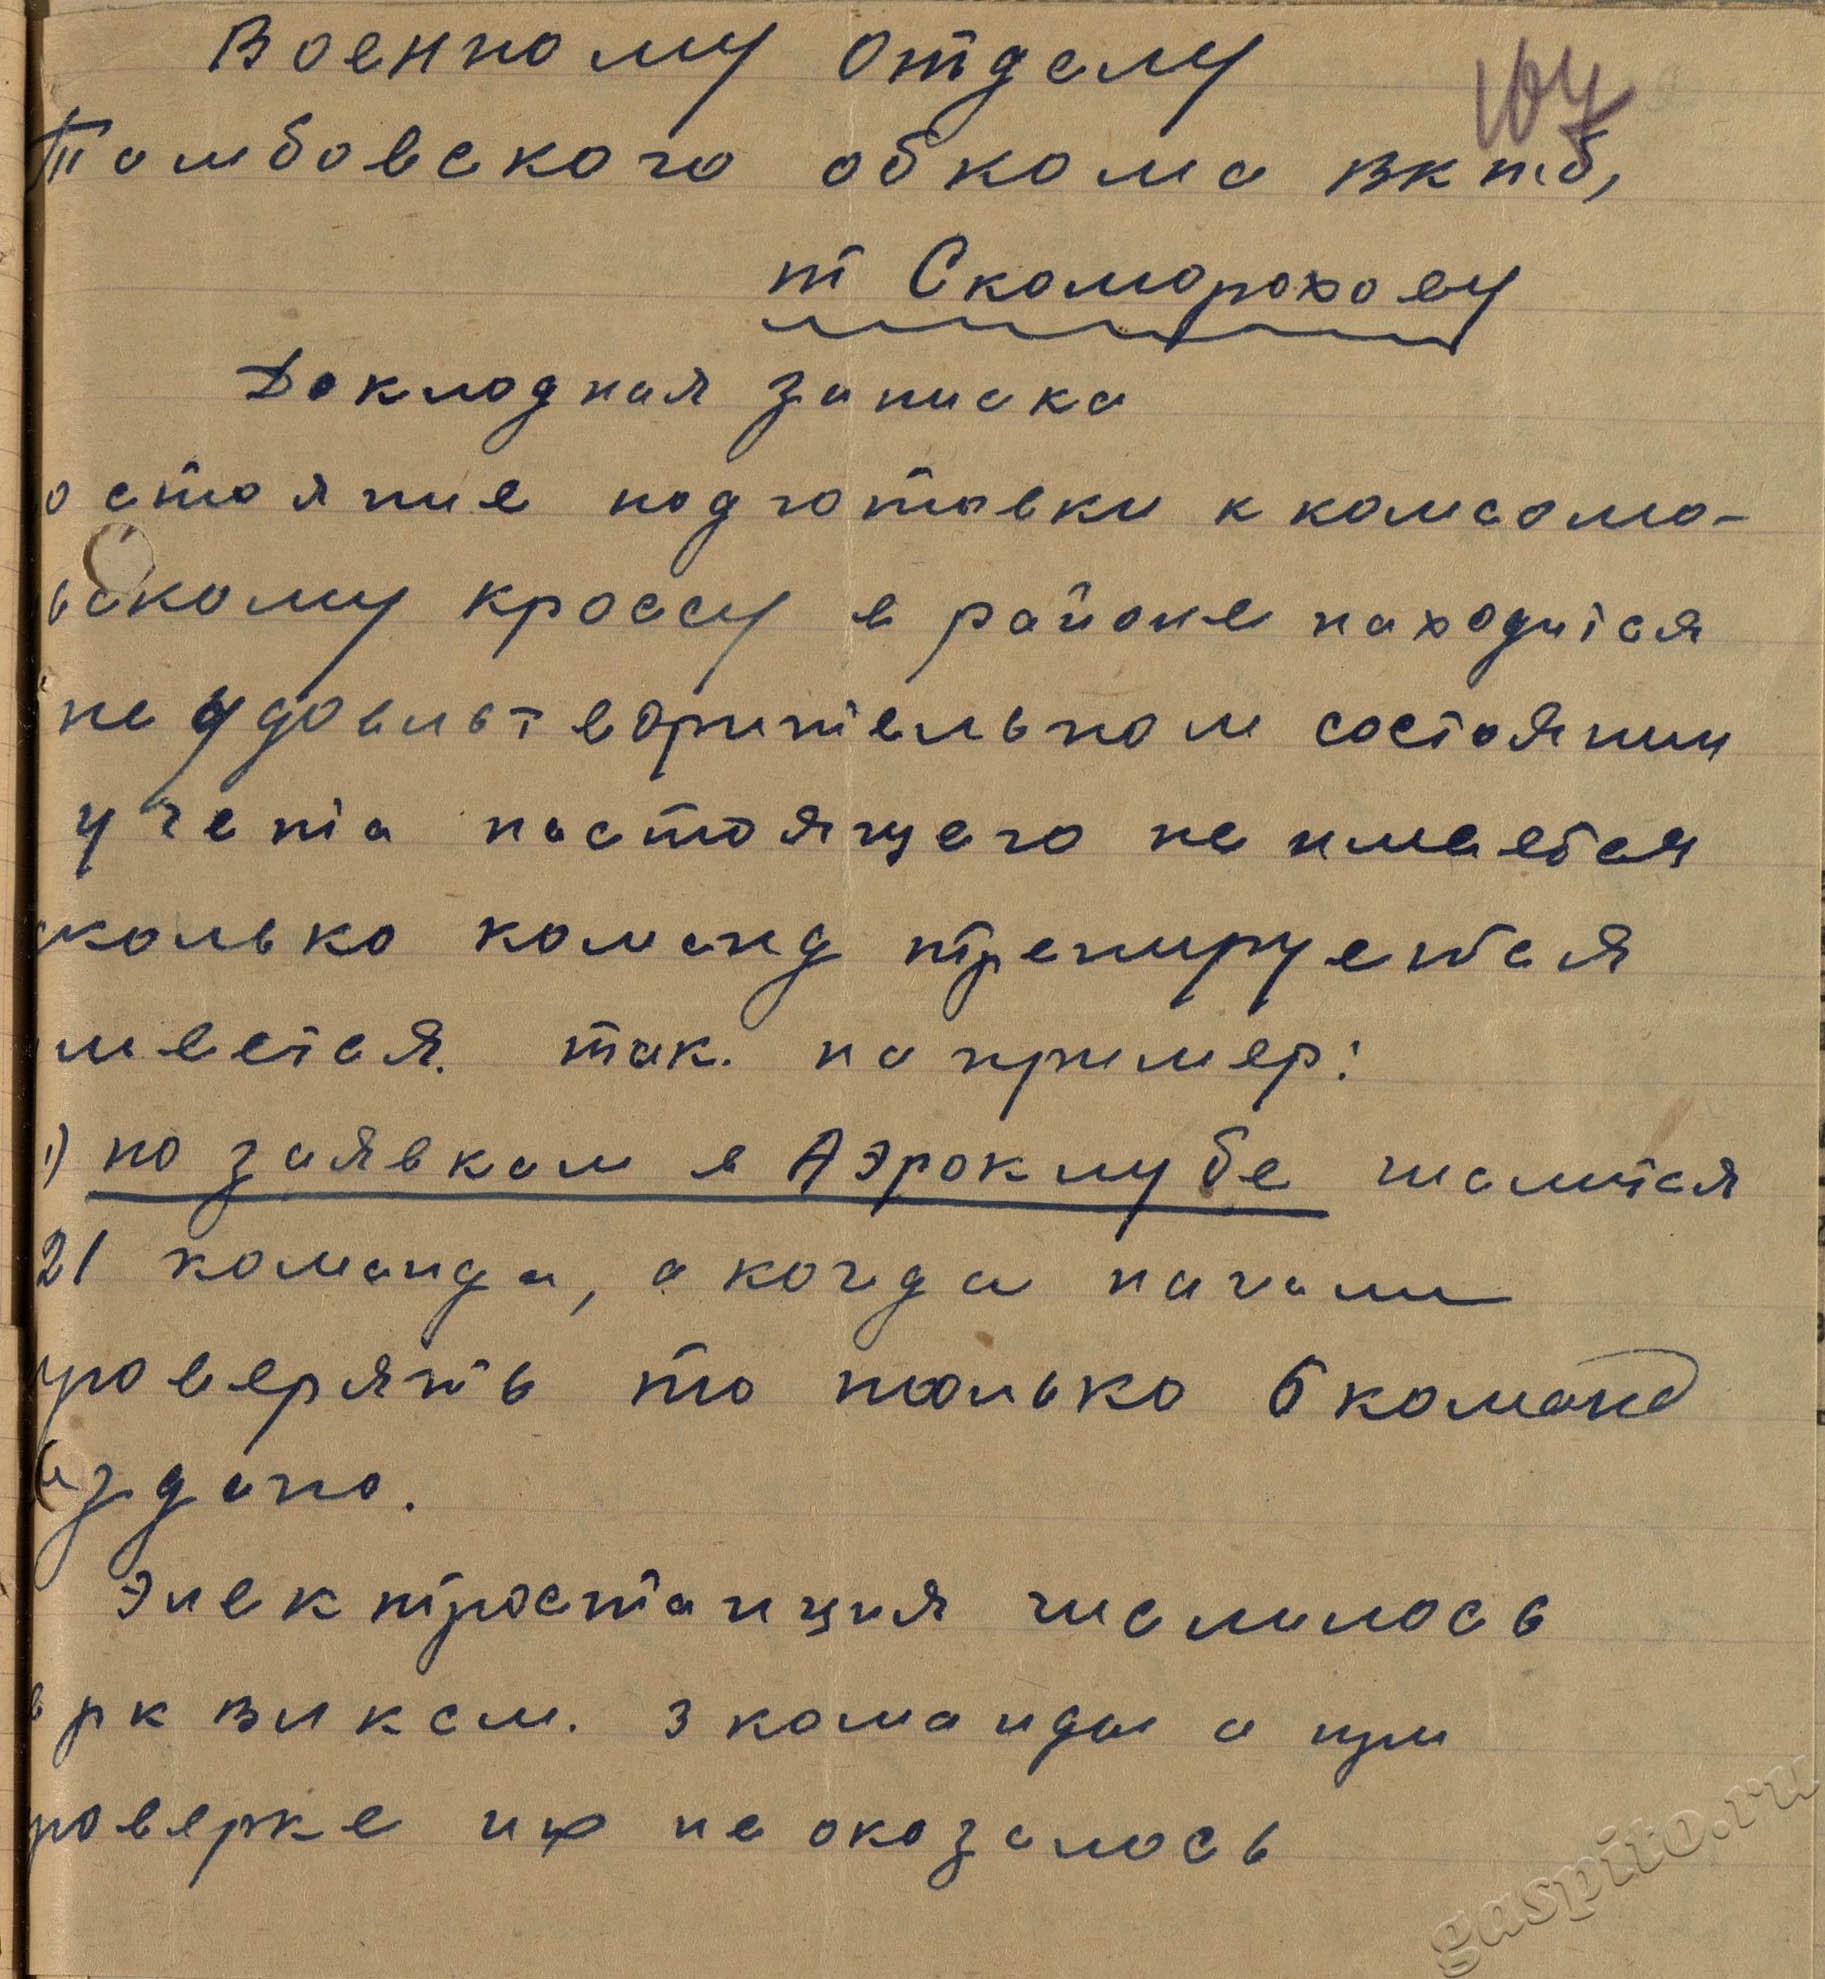 Военному отделу
107
Тамбовского обкома ВКПб,
т Скоморохову
Докладная записка
остояние подготовки к комсомо-
ьскому кроссу в районе находится
не удовильтворительном состоянии
учета настоящего не имеется
сколько команд тренируется
имеется. так. на пример:
1) по заявкам в Аэроклубе числится
21 команда, а когда начали
проверять то только 6 команд
создано.
Электростанция числилось
в рк влксм. 3 команды а при
роверке их не оказалось
gaspito.ru